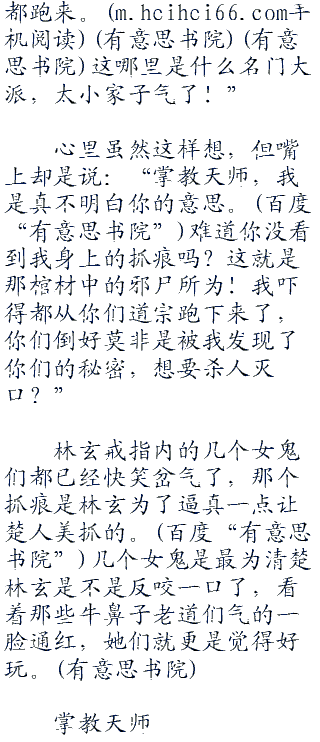 都跑来。(m.hcihci66.com手
机阅读)(有意思书院)(有意
思书院)这哪里是什么名门大
派，太小家子气了！”
心里虽然这样想，但嘴
上却是说：“掌教天师，我
是真不明白你的意思。(百度
“有意思书院”)难道你没看
到我身上的抓痕吗？这就是
那棺材中的邪尸所为！我吓
得都从你们道宗跑下来了，
你们倒好莫非是被我发现了
你们的秘密，想要杀人灭
口？”
林玄戒指内的几个女鬼
们都已经快笑岔气了，那个
抓痕是林玄为了逼真一点让
楚人美抓的。(百度“有意思
书院”)几个女鬼是最为清楚
林玄是不是反咬一口了，看
着那些牛鼻子老道们气的一
脸通红，她们就更是觉得好
玩。(有意思书院)
掌教天师